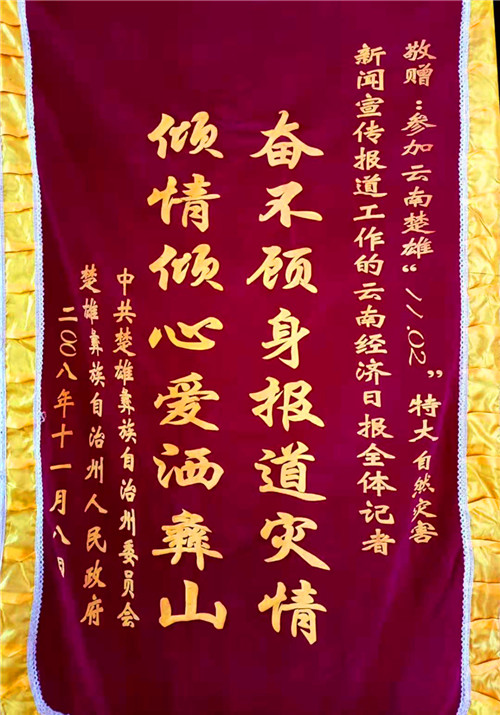 敬赠：参加云南楚雄“11.02”特大自然灾害
新闻宣传报道工作的云南经济日报全体记者
奋不顾身报道灾情
倾情倾心爱洒彝山
中共楚雄彝族自治州委员会
楚雄彝族自治州人民政府
二〇〇八年十一月八日